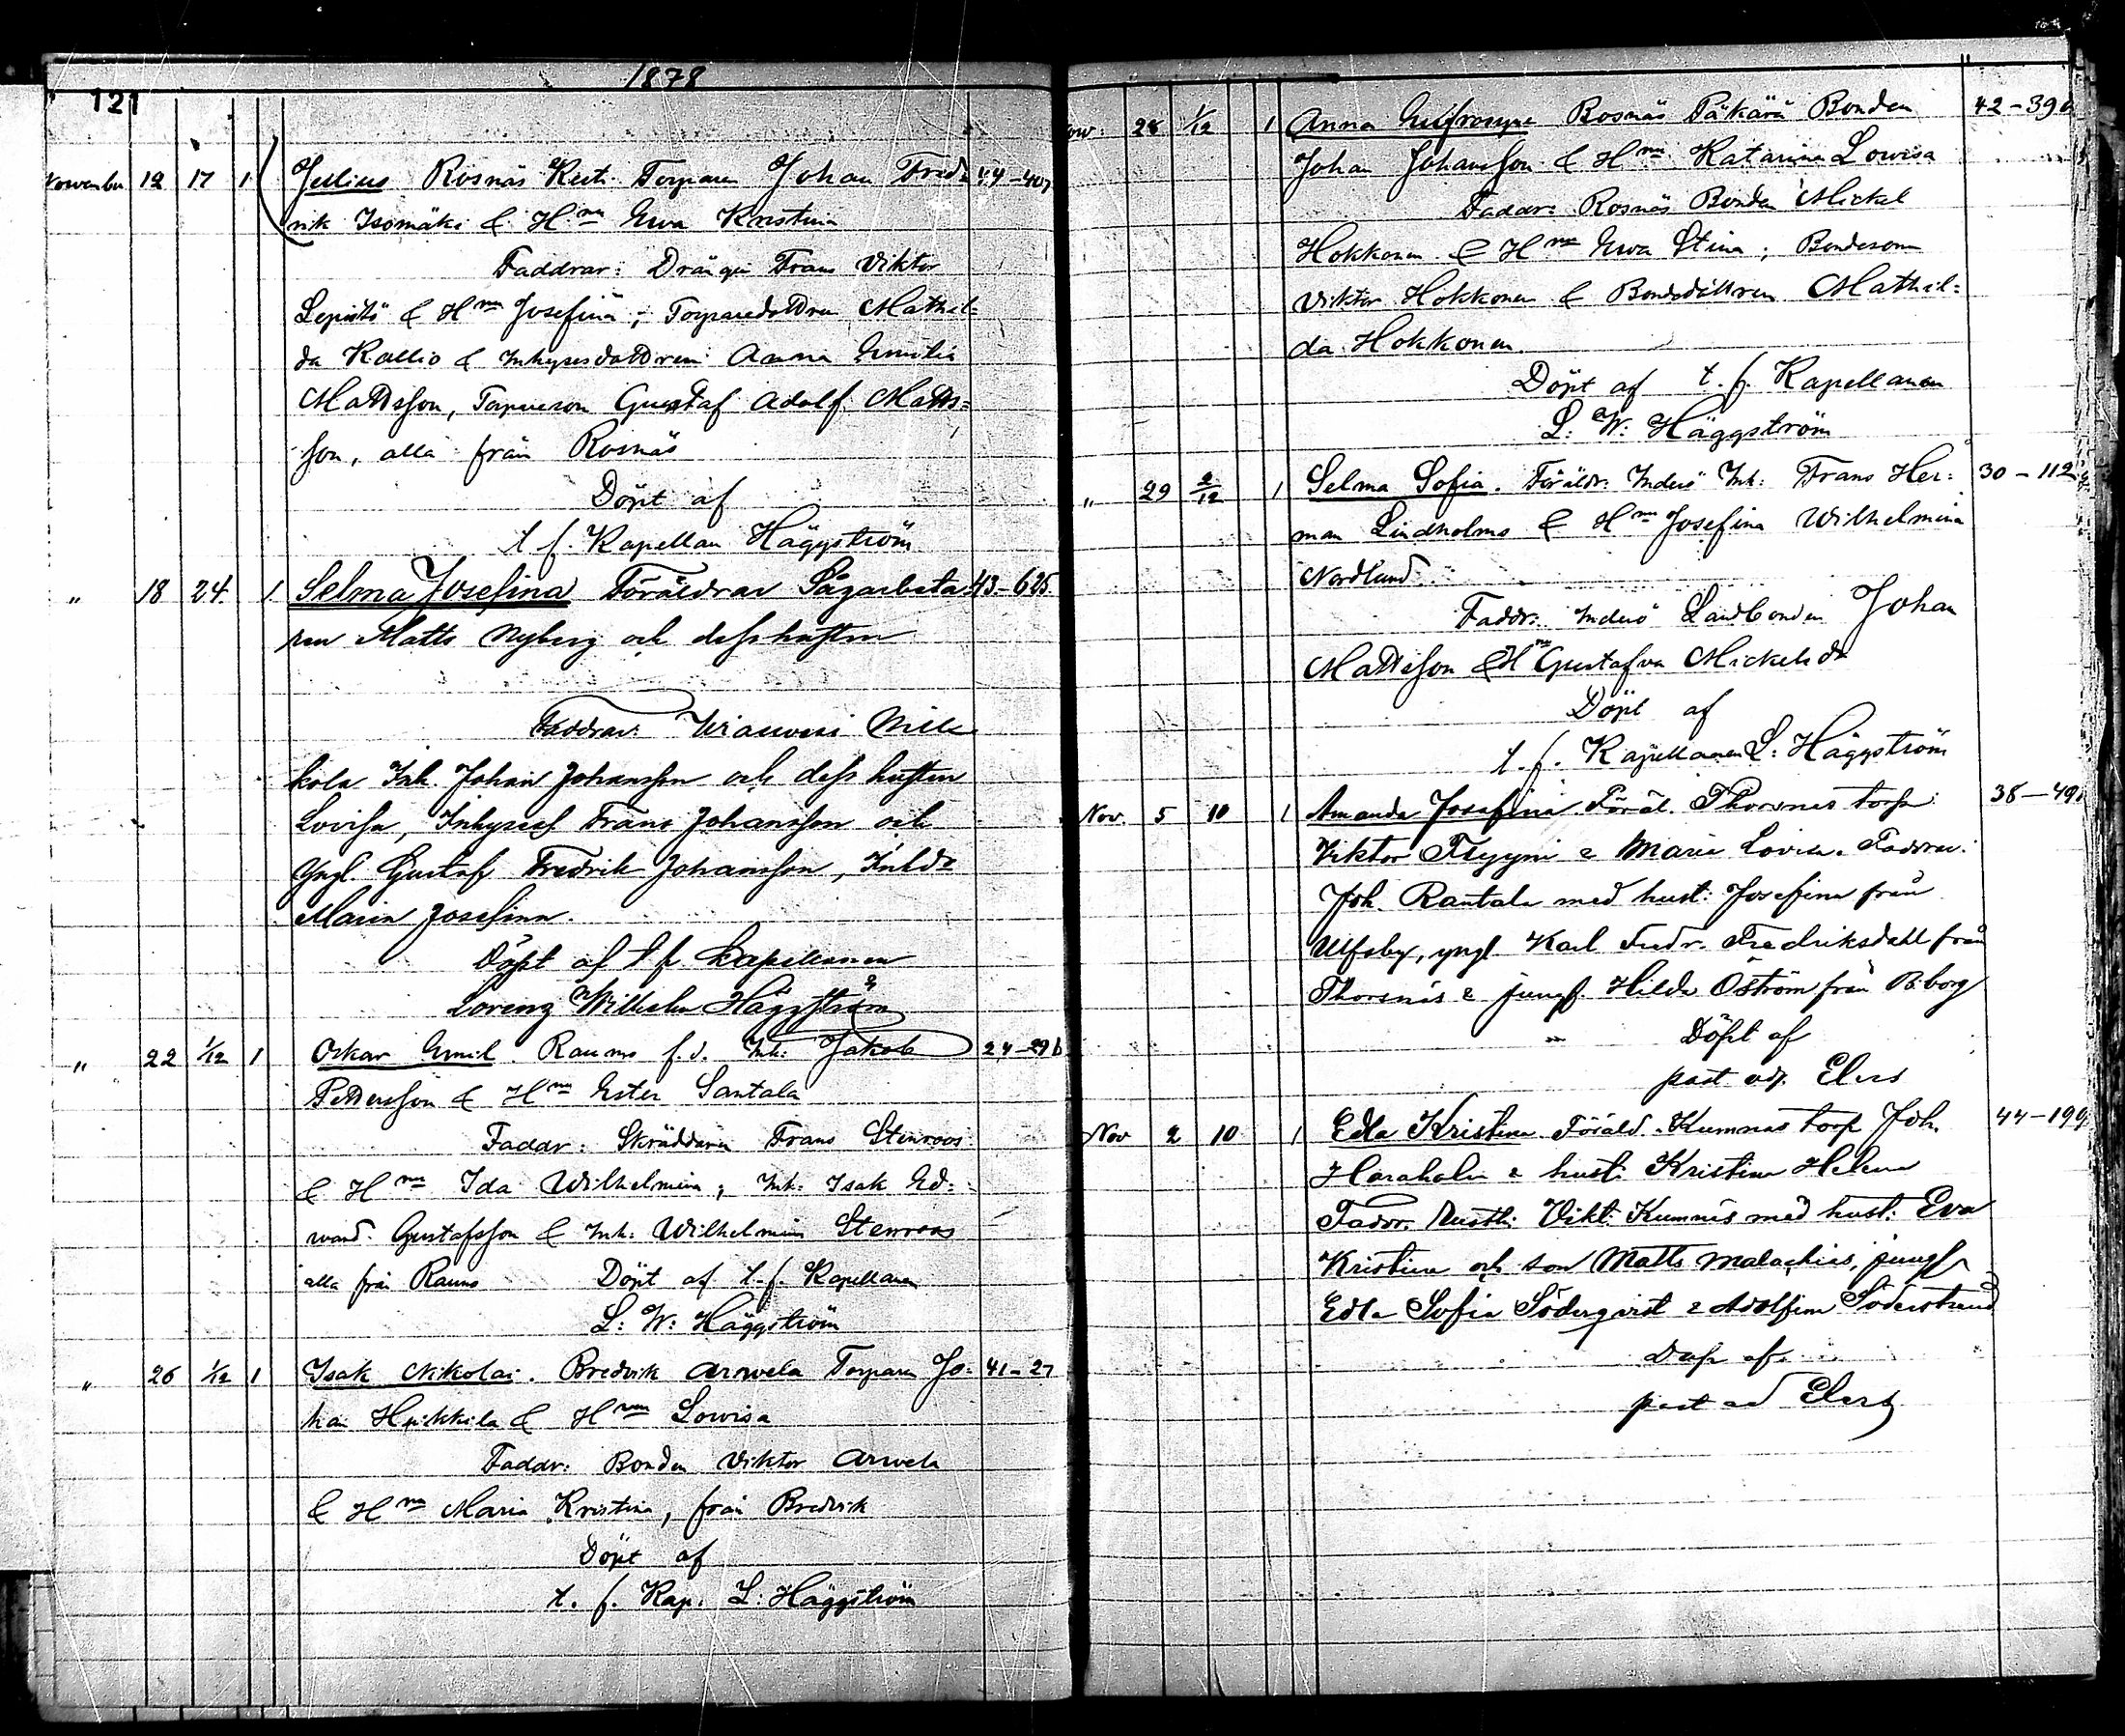 1878
121
November 12 17 1 Julius Rosnäs Torparen Johan Fred=
rik Isomäki & Hnu Ewa Kristina
Faddrar: Drängen Frans Viktor
& Hnu Josefina; Torparedottren Mathil=
da Kallio & Inhysesdottren Anna Emilia
Mattsson, Torpareson Gustaf Adolf Matts=
son, alla från Rosnäs
Döpt af
t f. Kapellan Häggström
" 18 24 1 Selma Josefina Föräldrar Sågarbeta 43-625.
ren Matts Nyberg och dess hustru
Faddrar
Inh. Johan Johansson och dess hustru
Lovisa, Inhyses Frans Johansson och
Yngl. Gustaf Fredrik Johansson, Inhdr
Maria Josefina.
Döpt af t f. Kapellanen
Lorenz Wilhelm Häggström
" 22 1/12 1 Oskar Emil. Raumo f.d. Inh: Jakob 24-29b
Pettersson & Hnu Ester Santala
Faddr: Skräddaren Frans Stenroos
& Hnu Ida Wilhelmina; Inh: Isak Ed=
ward Gustafsson & Inh: Wilhelmina Stenroos
alla från Raumo Döpt af t.f. Kapellanen
L: W: Häggström
" 26 1/12 1 Isak Nikolai. Bredvik Arwela Torparen Jo= 41-27
han Heikkila & Hnu Lowisa
Faddr: Bonden Viktor Arwela
& Hnu Maria Kristina, från Bredvik
Döpt af
t. f. Kap. L: Häggström
Nov. 28 1/12 1 Anna Eufrosyne Rosnäs Päkärä Bonden 42-39
Johan Johansson & Hnu Katarina Lowisa
Faddr: Rosnäs Bonden Mickel
Hokkonen & Hnu Ewa Stina; Bondesonen
Viktor Hokkonen & Bondedottren Mathil=
da Hokkonen
Döpt af t. f. Kapellanen
L: W: Häggström
" 29 2/12 1 Selma Sofia. Föräldr: Inderö Inh: Frans Her= 30-112
man Lindholms & Hnu Josefina Wilhelmina
Nordlund
Faddr: Inderö Landbonden Johan
Mattsson & Hnu Gustafva Mickelsdr
Döpt af
t. f. Kapellanen L: Häggström
Nov. 5 10 1 Amanda Josefina. Föräl. Thorsnäs torp: 38-49
Viktor & Maria Lovisa. Faddrar:
Joh. Rantala med hust: Josefina från
Ulfsby, yngl. Karl Fredr. Fredriksdahl från
Thorsnäs & jungf. Hilda Öström från B:borg
Döpt af
past. adj. Elers
Nov 2 10 1 Edla Kristina Föräld. Kumnäs torp Joh. 44-199
Harahala & hust: Kristina Helena
Faddr. Vikt: Kumnäs med hust: Eva
Kristina och son Matts Malachias, jungf
Edla Sofia Söderqvist & Adolfina Söderstrand
Döp af
past ad Elers